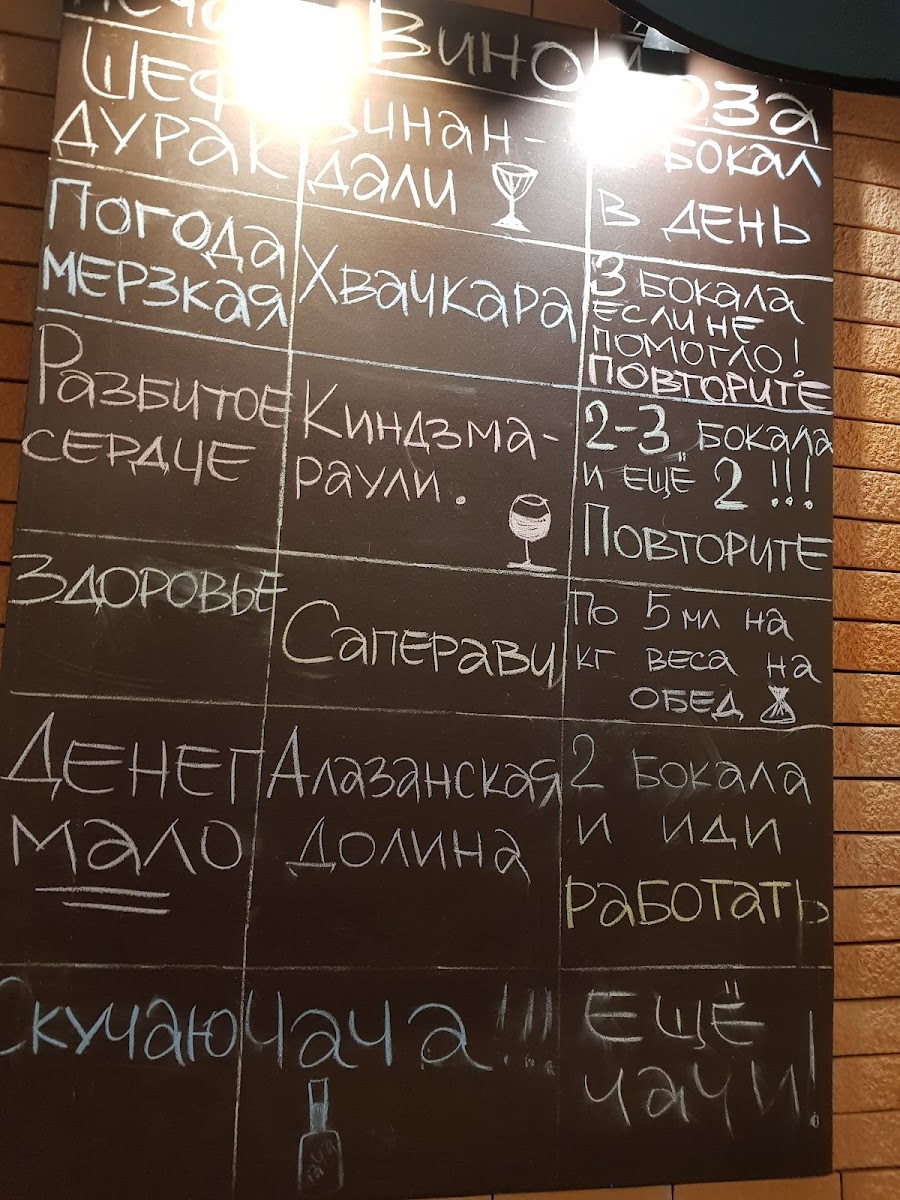 Вино
Доза
ШЕФ
ДУРАК
Цинан-
дали
БОКАЛ
В ДЕНЬ
Погода
МЕРЗКАЯ
Хвачкара
3 БОКАЛА
ЕСЛИ НЕ
ПОМОГЛО!
ПОВТОРИТЕ
Разбитое
СЕРДЦЕ
Киндзма-
раули.
2-3 БОКАЛА
И ЕЩЁ 2 !!!
Повторите
Здоровье
Саперави
По 5 мл на
кг веса на
ОБЕД
Денег
мало
Алазанская
долина
2 Бокала
и иди
работать
Скучаю
Чача !!!
ЕЩЁ
чачи!